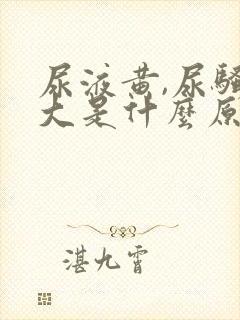 尿液黄,尿骚
大是什麼原
湛九霄